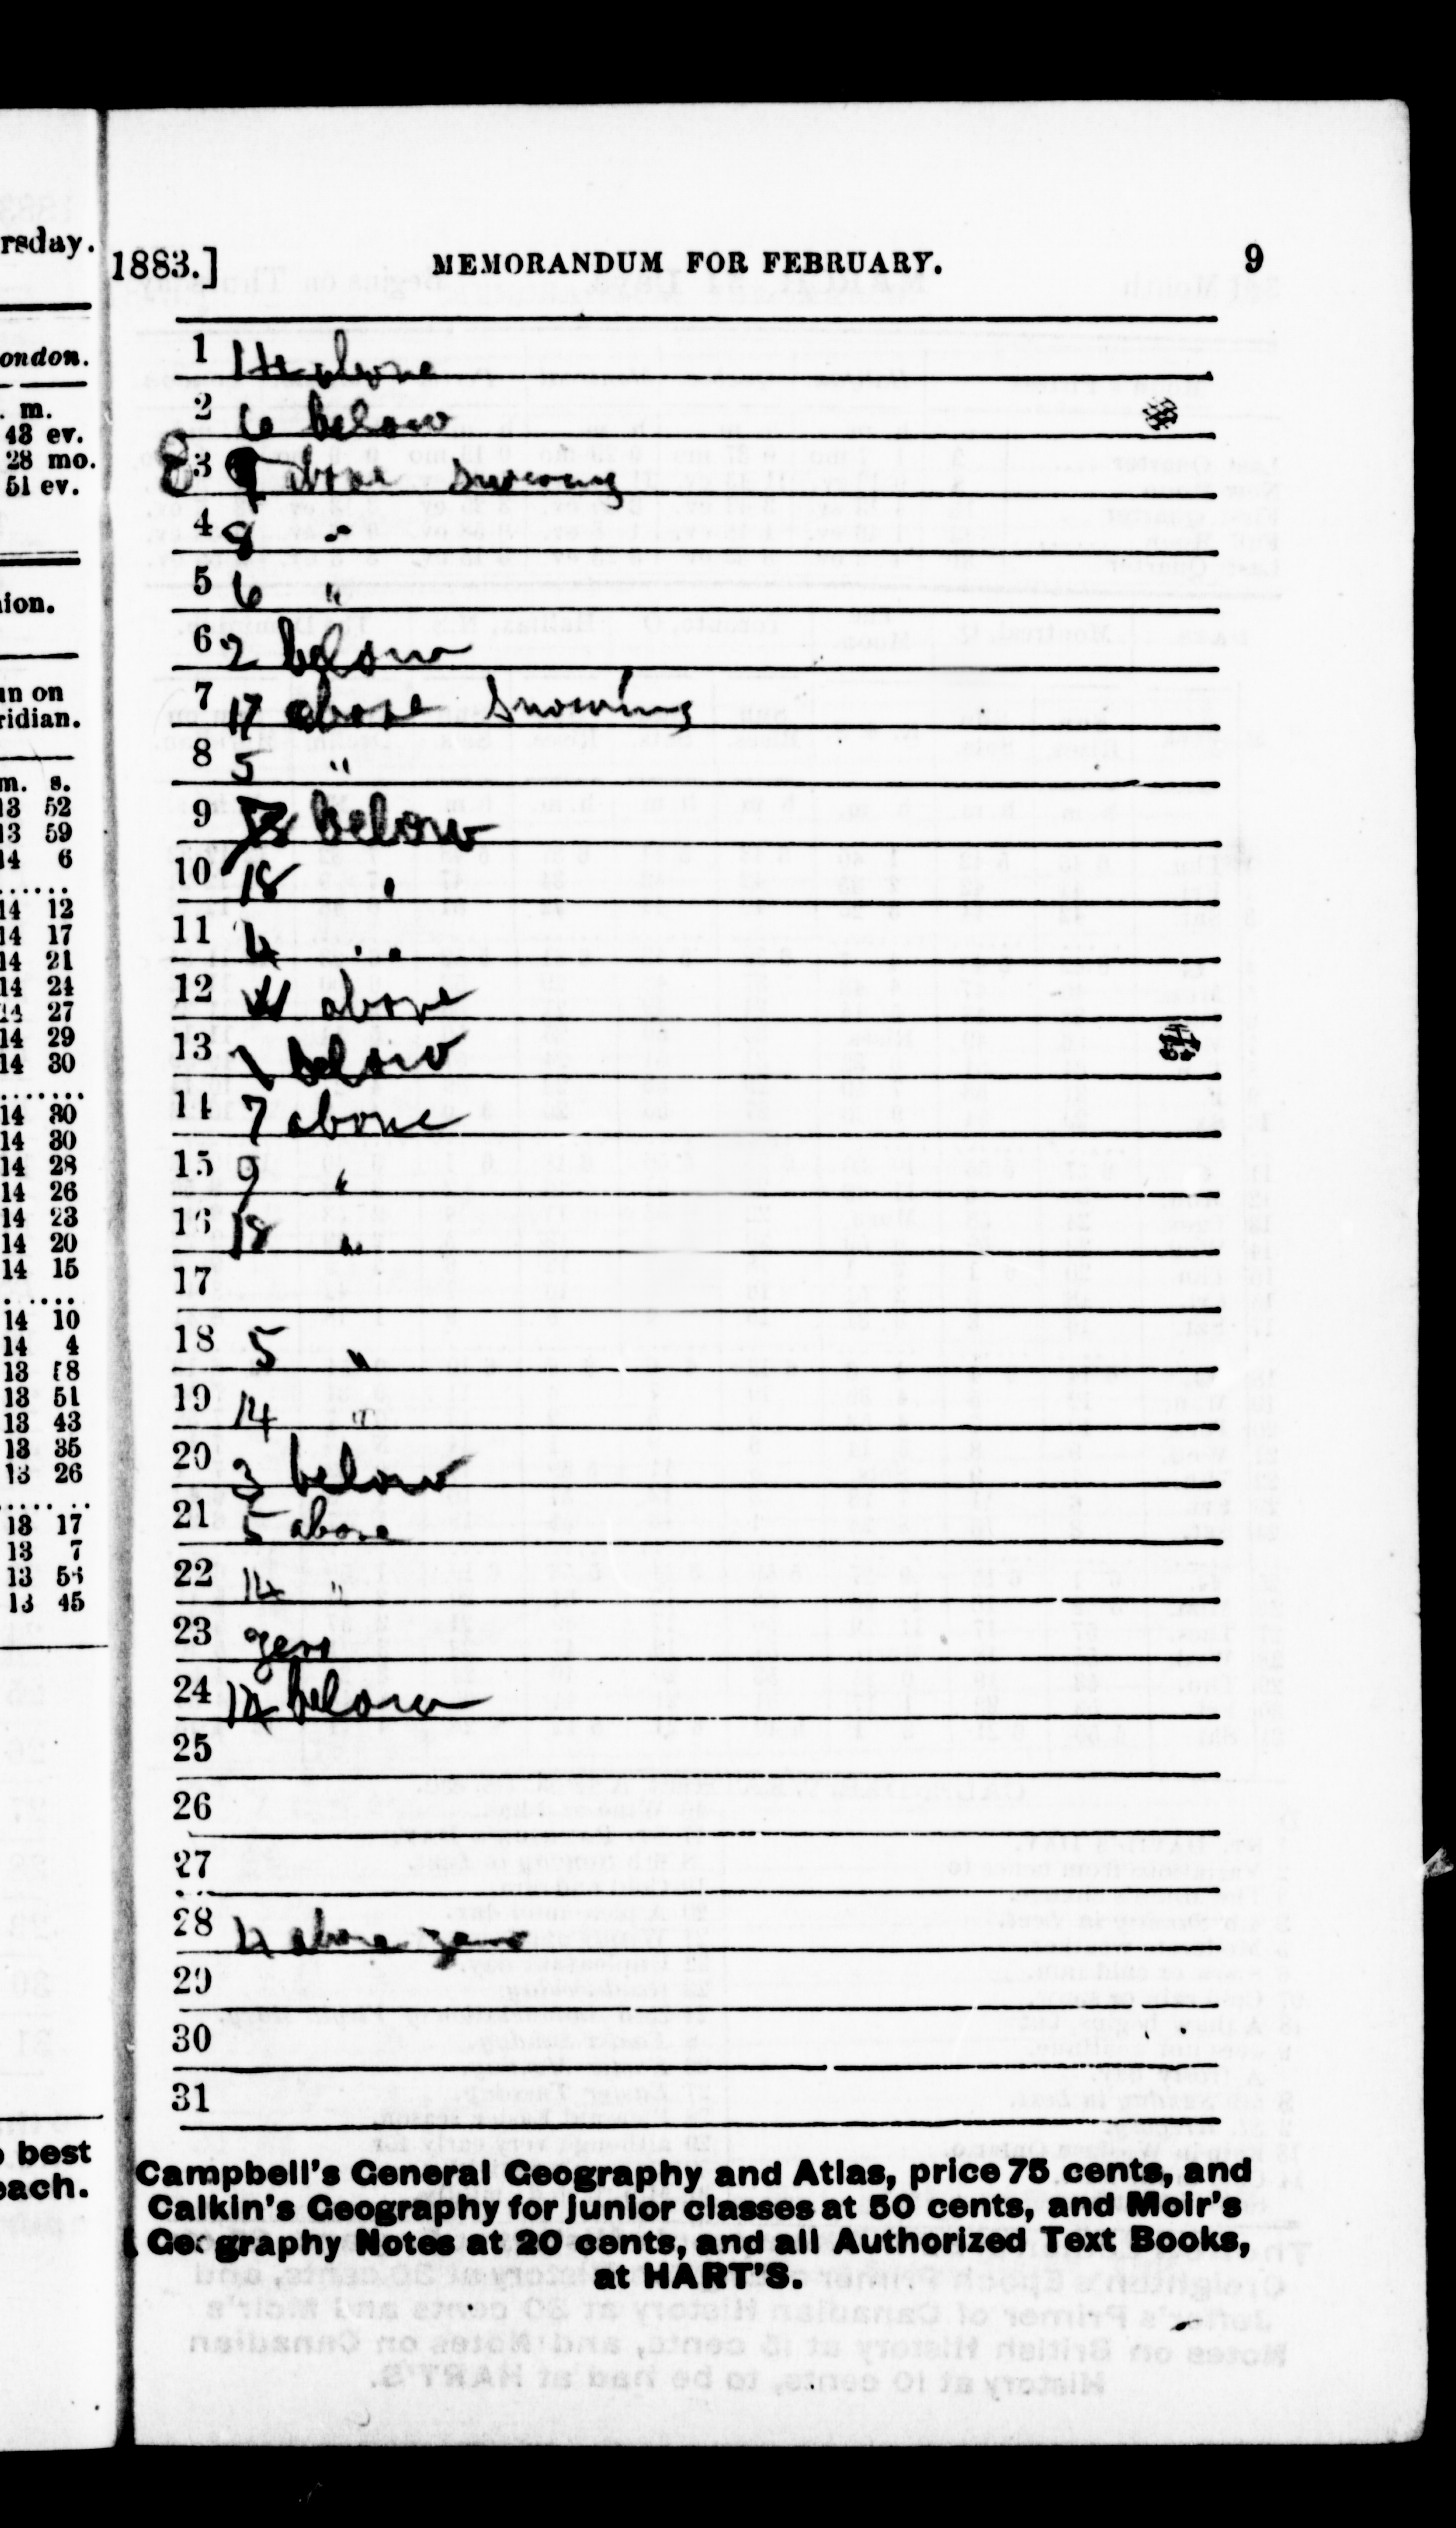 rsday.
ondon.
. m.
48 ev.
28 mo.
51 ev.
ion.
un on
ridian.
m. s.
13 52
13 59
14 6
14 12
14 17
14 21
14 24
14 27
14 29
14 30
14 30
14 30
14 28
14 26
14 23
14 20
14 15
14 10
14 4
13 58
13 51
13 43
13 35
13 26
13 17
13 7
13 56
13 45
best
each.
1883.] MEMORANDUM FOR FEBRUARY. 9
1 14 above
2 6 below
3 9 above snowing
4 8 "
5 6 "
6 2 below
7 17 above Snowing
8 5 "
9 below
10 18 "
11 4 "
12 above
13 below
14 7 above
15 9 "
16 18 "
17
18 5 "
19 14 "
20 3 below
21 5 above
22 14 "
23 zero
24 below
25
26
27
28 above zero
29
30
31
Campbell's General Geography and Atlas, price 75 cents, and
Calkin's Geography for junior classes at 50 cents, and Moir's
Geography Notes at 20 cents, and all Authorized Text Books,
at HART'S.